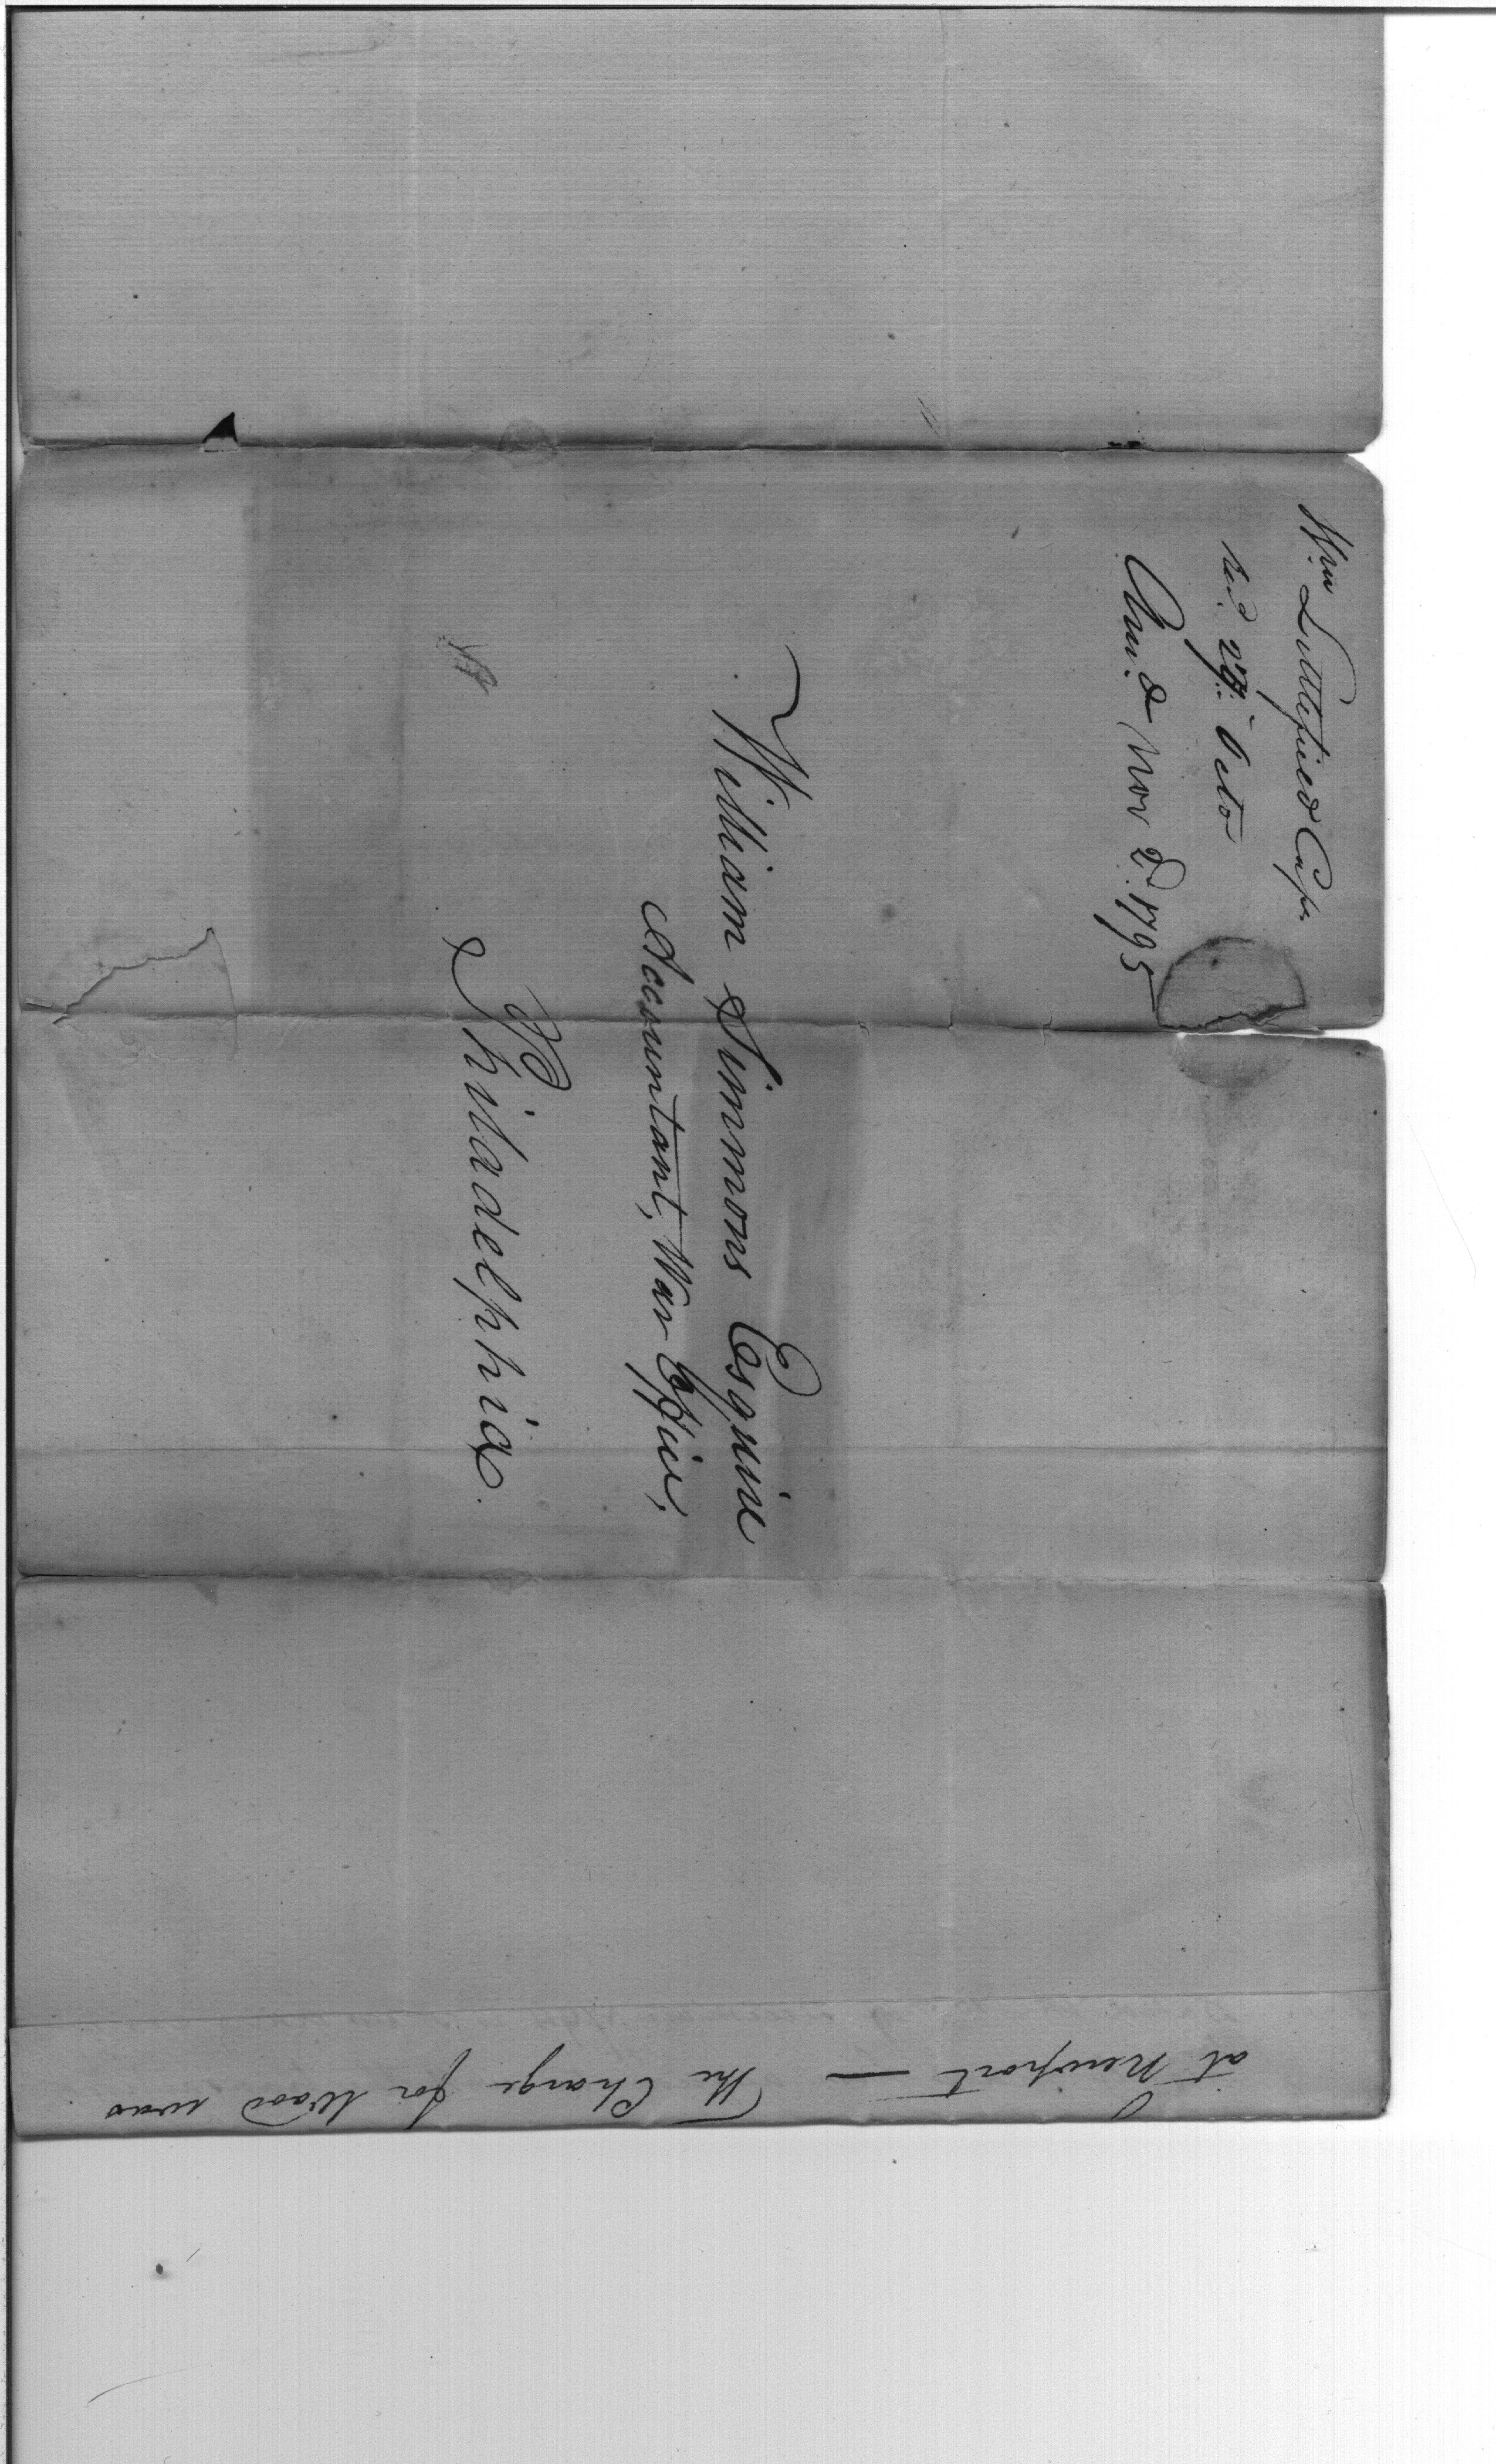 Wm Littlefield Capt.
recd. 29. Octo
Ansd Nov 2d. 1795
William Simmons Esquire
Accountant, War Office,
Philadelphia.
at Newport — The Charge for Wood was